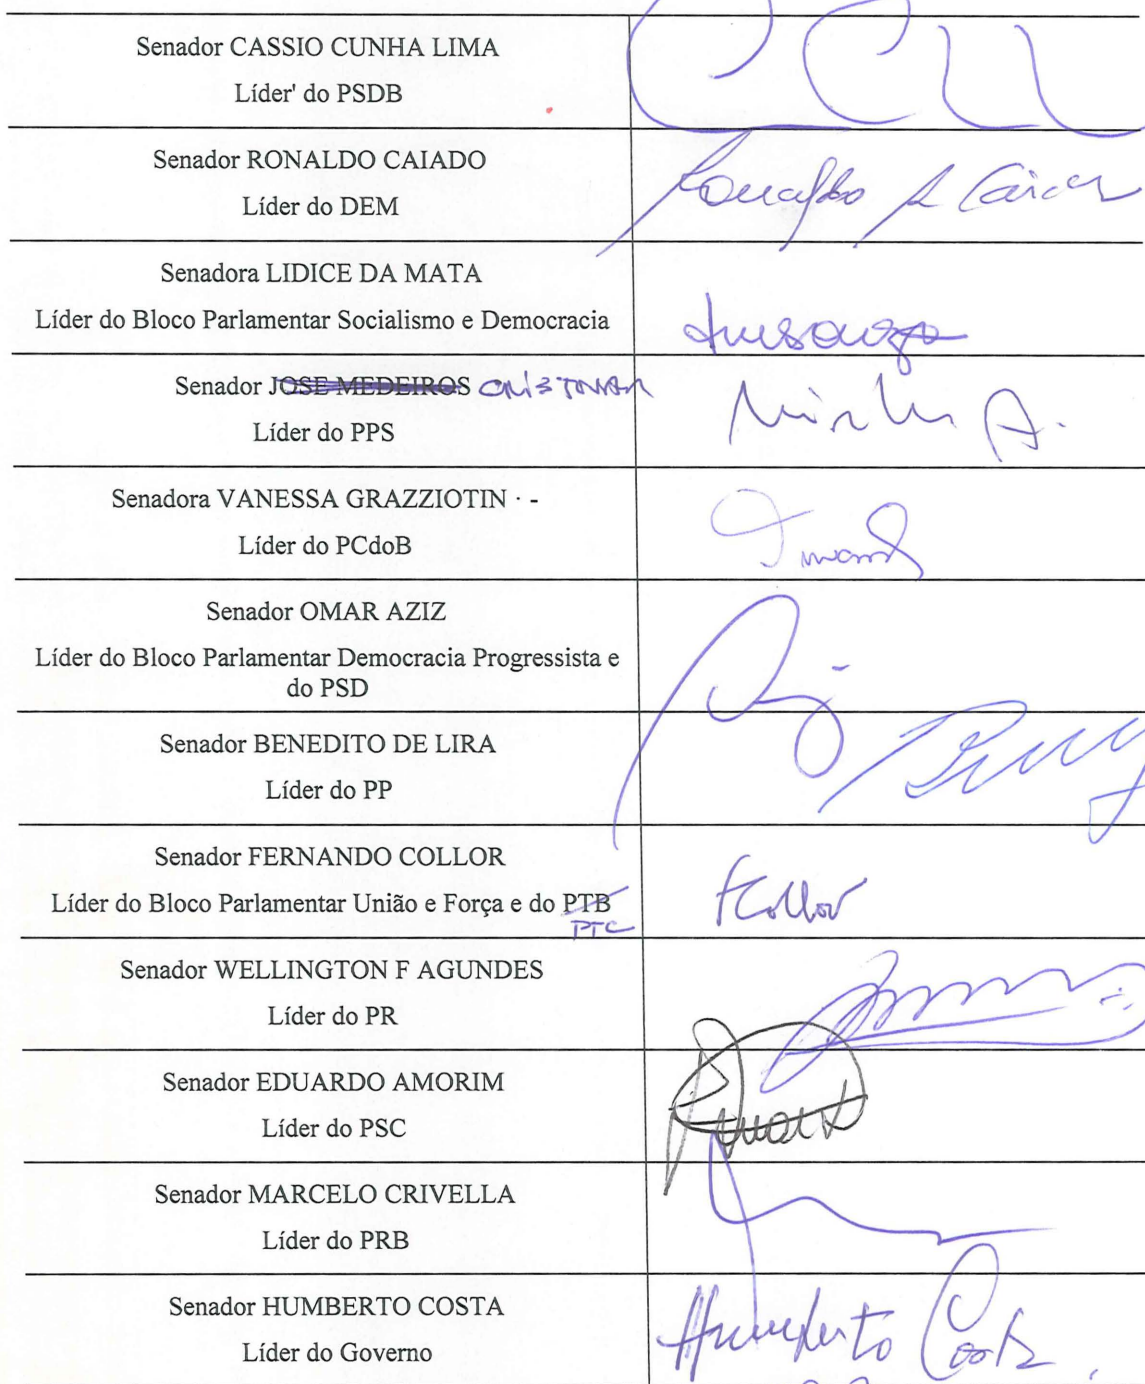 Senador CASSIO CUNHA LIMA
Líder' do PSDB
Senador RONALDO CAIADO
Líder do DEM
Senadora LIDICE DA MATA
Líder do Bloco Parlamentar Socialismo e Democracia
Senador JOSE MEDEIROS CRISTOVAM
Líder do PPS
Senadora VANESSA GRAZZIOTIN · -
Líder do PCdoB
Senador OMAR AZIZ
Líder do Bloco Parlamentar Democracia Progressista e
do PSD
Senador BENEDITO DE LIRA
Líder do PP
Senador FERNANDO COLLOR
Líder do Bloco Parlamentar União e Força e do PTB
PTC
FCollor
Senador WELLINGTON F AGUNDES
Líder do PR
Senador EDUARDO AMORIM
Líder do PSC
Senador MARCELO CRIVELLA
Líder do PRB
Senador HUMBERTO COSTA
Líder do Governo
Humberto Costa